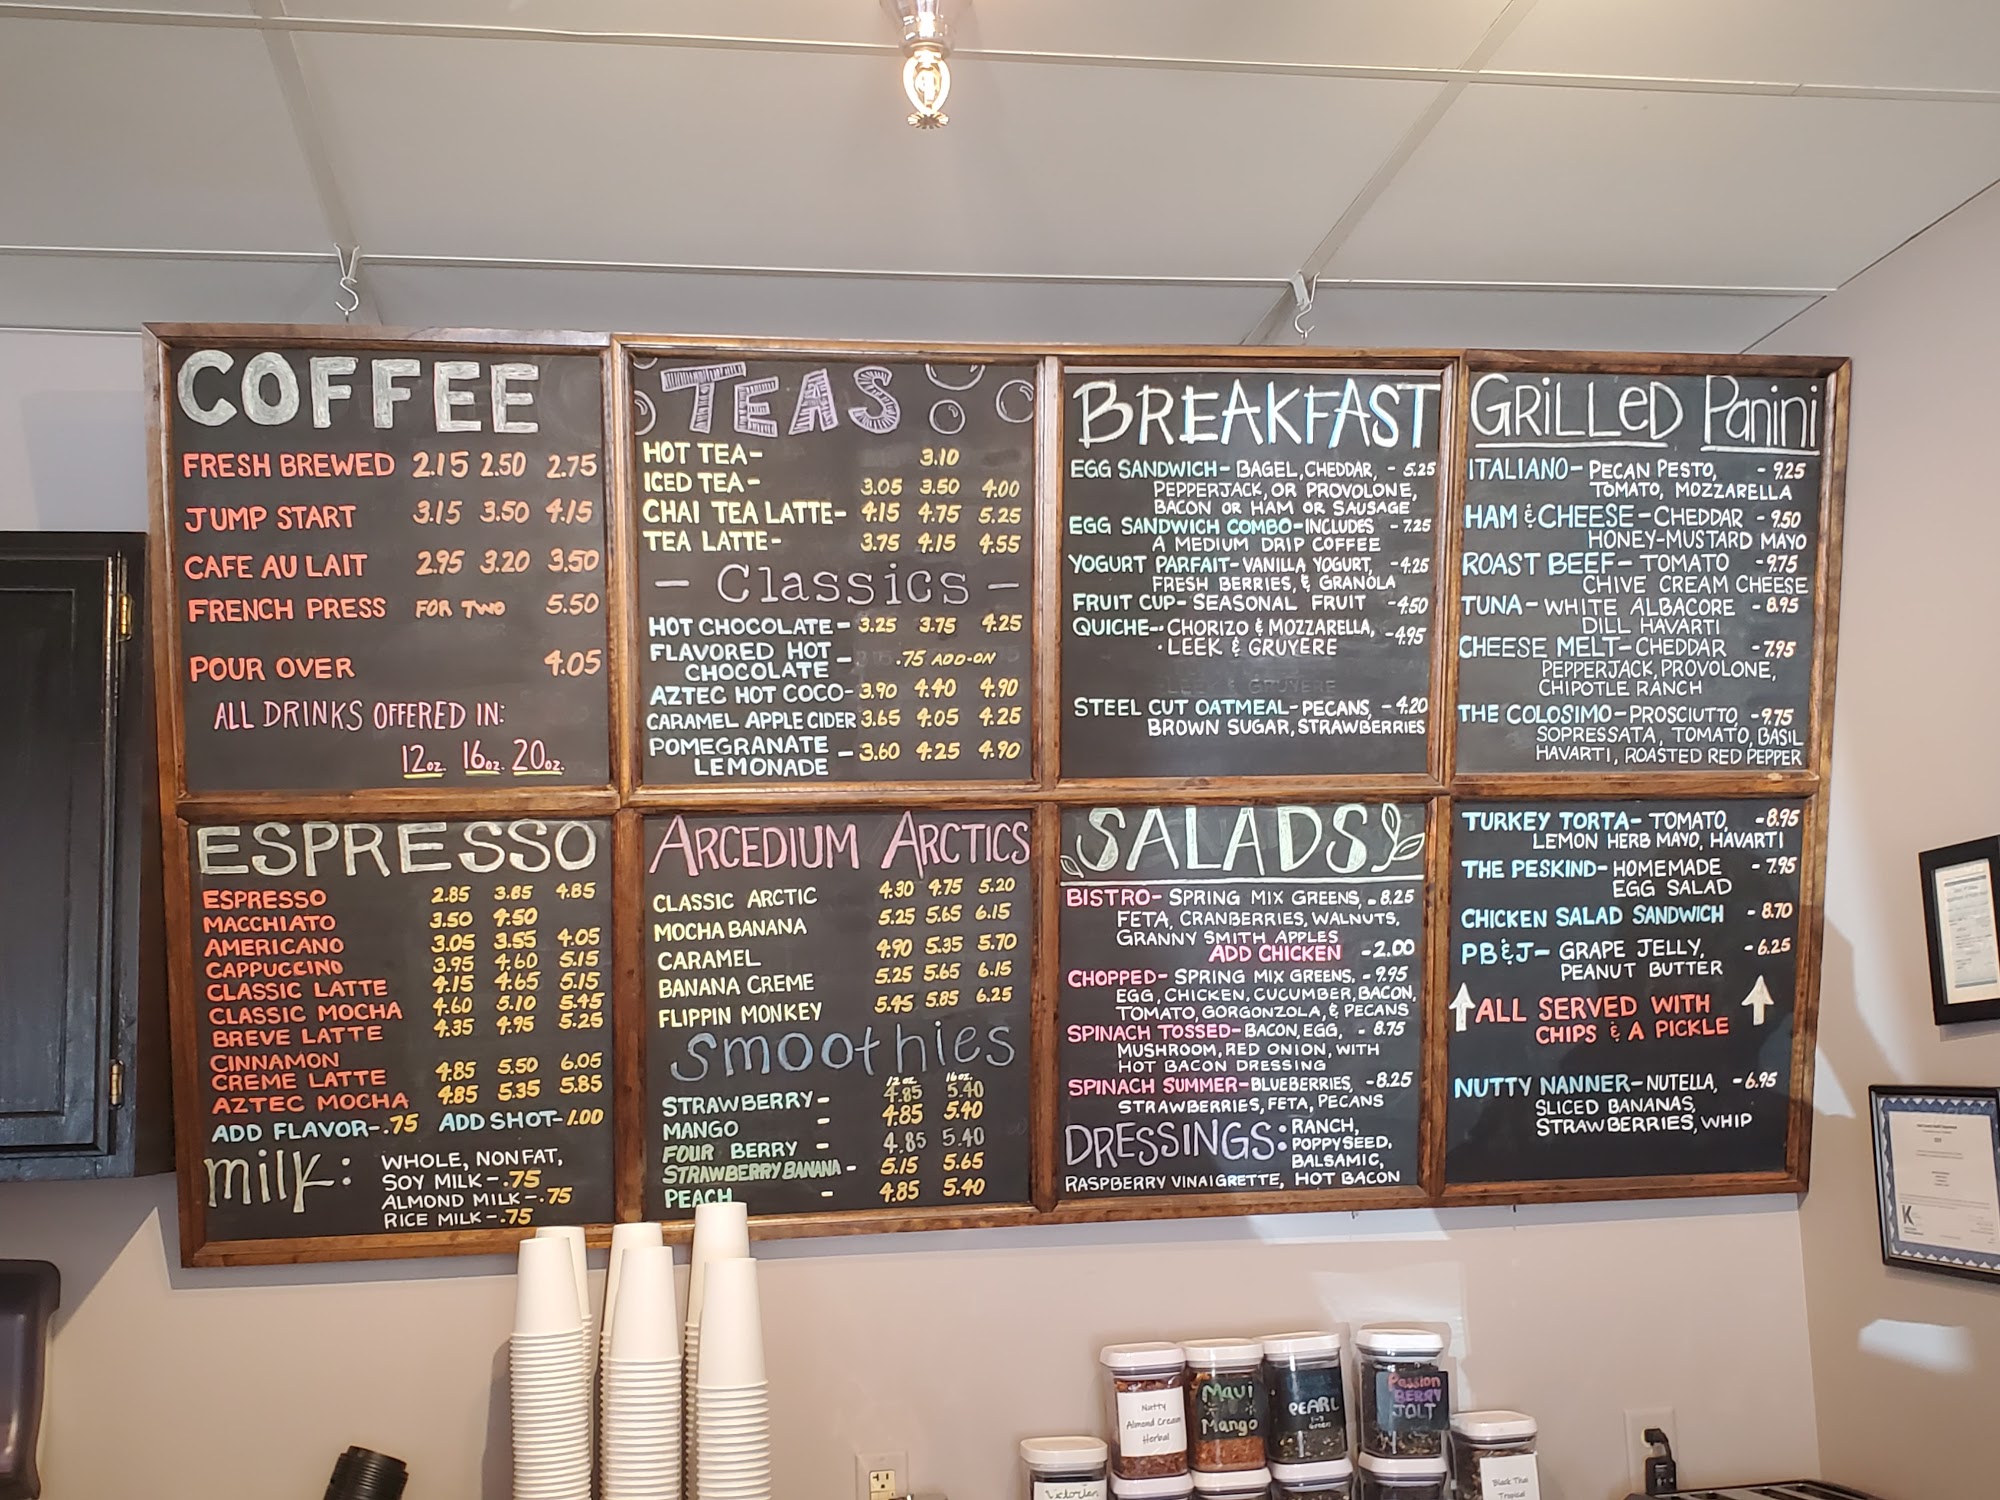 COFFEE
FRESH BREWED 2.15 2.50 2.75
JUMP START 3.15 3.50 4.15
CAFE AU LAIT 2.95 3.20 3.50
FRENCH PRESS FOR TWO 5.50
POUR OVER 4.05
ALL DRINKS OFFERED IN:
12oz. 16oz. 20oz.
TEAS
HOT TEA- 3.10
ICED TEA- 3.05 3.50 4.00
CHAI TEA LATTE- 4.15 4.75 5.25
TEA LATTE- 3.75 4.15 4.55
- Classics -
HOT CHOCOLATE- 3.25 3.75 4.25
FLAVORED HOT
CHOCOLATE - .75 ADD-ON
AZTEC HOT COCO- 3.90 4.40 4.90
CARAMEL APPLE CIDER 3.65 4.05 4.25
POMEGRANATE
LEMONADE - 3.60 4.25 4.90
BREAKFAST
EGG SANDWICH- BAGEL, CHEDDAR, - 5.25
PEPPERJACK, OR PROVOLONE,
BACON OR HAM OR SAUSAGE
EGG SANDWICH COMBO-INCLUDES - 7.25
A MEDIUM DRIP COFFEE
YOGURT PARFAIT- VANILLA YOGURT, -4.25
FRESH BERRIES, & GRANOLA
FRUIT CUP- SEASONAL FRUIT -4.50
QUICHE-• CHORIZO & MOZZARELLA, -4.95
• LEEK & GRUYERE
LEEK & GRUYERE
STEEL CUT OATMEAL-PECANS, - 4.20
BROWN SUGAR, STRAWBERRIES
GRiLLeD Panini
ITALIANO- PECAN PESTO, - 9.25
TOMATO, MOZZARELLA
HAM & CHEESE- CHEDDAR - 9.50
HONEY-MUSTARD MAYO
ROAST BEEF- TOMATO -9.75
CHIVE CREAM CHEESE
TUNA- WHITE ALBACORE - 8.95
DILL HAVARTI
CHEESE MELT- CHEDDAR -7.95
PEPPERJACK, PROVOLONE,
CHIPOTLE RANCH
THE COLOSIMO-PROSCIUTTO, -9.75
SOPRESSATA, TOMATO, BASIL
HAVARTI, ROASTED RED PEPPER
ESPRESSO
ESPRESSO 2.85 3.85 4.85
MACCHIATO 3.50 4.50
AMERICANO 3.05 3.55 4.05
CAPPUCCINO 3.95 4.60 5.15
CLASSIC LATTE 4.15 4.65 5.15
CLASSIC MOCHA 4.60 5.10 5.45
BREVE LATTE 4.35 4.95 5.25
CINNAMON
CREME LATTE 4.85 5.50 6.05
AZTEC MOCHA 4.85 5.35 5.85
ADD FLAVOR-.75 ADD SHOT-1.00
milk: WHOLE, NONFAT,
SOY MILK -.75
ALMOND MILK -.75
RICE MILK -.75
ARCEDIUM ARCTICS
CLASSIC ARCTIC 4.30 4.75 5.20
MOCHA BANANA 5.25 5.65 6.15
CARAMEL 4.90 5.35 5.70
BANANA CREME 5.25 5.65 6.15
FLIPPIN MONKEY 5.45 5.85 6.25
Smoothies
12oz. 16oz.
STRAWBERRY - 4.85 5.40
MANGO - 4.85 5.40
FOUR BERRY - 4.85 5.40
STRAWBERRY BANANA - 5.15 5.65
PEACH - 4.85 5.40
SALADS
BISTRO- SPRING MIX GREENS, - 8.25
FETA, CRANBERRIES, WALNUTS,
GRANNY SMITH APPLES
ADD CHICKEN -2.00
CHOPPED- SPRING MIX GREENS, -9.95
EGG, CHICKEN, CUCUMBER, BACON,
TOMATO, GORGONZOLA, & PECANS
SPINACH TOSSED- BACON, EGG, - 8.75
MUSHROOM, RED ONION, WITH
HOT BACON DRESSING
SPINACH SUMMER-BLUEBERRIES, -8.25
STRAWBERRIES, FETA, PECANS
DRESSINGS: RANCH,
POPPYSEED,
BALSAMIC,
RASPBERRY VINAIGRETTE, HOT BACON
TURKEY TORTA- TOMATO, -8.95
LEMON HERB MAYO, HAVARTI
THE PESKIND- HOMEMADE -7.95
EGG SALAD
CHICKEN SALAD SANDWICH - 8.70
PB&J- GRAPE JELLY, - 6.25
PEANUT BUTTER
ALL SERVED WITH
CHIPS & A PICKLE
NUTTY NANNER- NUTELLA, - 6.95
SLICED BANANAS,
STRAWBERRIES, WHIP
Nutty
Almond Cream
Herbal
Maui
Mango
PEARL
Passion
BERRY
JOLT
Black Thai
Tropical